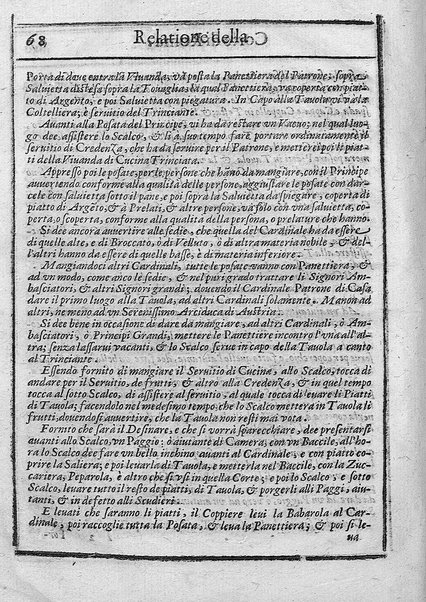 68 Relatione della
Porta di doue entra la Viuanda, và posta la Panettiera del Patrone; sopra
Saluietta distesa sopra la Touaglia; la qual Panettiera, và coperta con piat-
to di Argento, e poi Saluietta con piegatura. In Capo alla Tauola vi và la
Coltelliera; è seruitio del Trinciante.
Auanti alla Posata del Principe, vi ha da restare vn Vacuo; nel qual luo-
go dee assistere lo Scalco, & iui a suo tempo fare portare ordinatamente il
seruitio di Credenza, che ha da seruire per il Patrone; e metterci poi li piat-
ti della Viuanda di Cucina Trinciata.
Appresso poi le posate, per le persone che hanno da mangiare, con il Principe
auuertendo conforme alla qualità delle persone, aggiustare le posate con dar-
cele con saluietta sotto il pane, e poi sopra la Saluietta da spiegare, coperta di
piatto di Argẽto, & à Prelati, & altre persone, và solo con vna saluietta, co-
perta, o scoperta, conforme alla qualità della persona, o prelature che hanno.
Si dee ancora auuertire alle sedie, che quella del Cardinale ha da essere
di quelle alte, e di Broccato, ò di Velluto, ò di altra materia nobile, & del-
l'altri hanno da essere di quelle basse, è di materia inferiore.
Mangiandoci altri Cardinali, tutte le posate vanno con Panettiera, &
ad vn modo, come anco le sedie, & nel pari grado trattare li Signori Am-
basciatori, & altri Signori grandi; douendo il Cardinale Patrone di Casa,
dare il primo luogo alla Tauola, ad altri Cardinali solamente. Ma non ad al-
tri, ne meno ad vn Serenissimo Arciduca di Austria.
Si dee bene in occasione di dare da mangiare, ad altri Cardinali, ò Am-
basciatori, ò Principi Grandi, mettere le Panettiere incontro l'vna all'al-
tra; senza lassarui vacanti, & lo Scalco serue in capo della Tauola a canto
al Trinciante.
Essendo fornito di mangiare il Seruitio di Cucina, allo Scalco, tocca di
andare per il Seruitio, de frutti, & altro alla Credenza, & in quel tempo
tocca al sotto Scalco, di assistere al seruitio, al quale tocca di leuare li Piatti
di Tauola; facendolo nel medesimo tempo, che lo Scalco metterà in Tauola li
frutti, douendosi auuertire, che la Tauola non resti mai vota.
Fornito che sarà il Desinare, e che si vorrà sparecchiare, dee presentarsi
auanti allo Scalco, vn Paggio; ò aiutante di Camera, con vn Baccile, all'ho-
ra lo Scalco dee fare vn bello inchino auanti al Cardinale, e con piatto co-
prire la Saliera; e poi leuarla di Tauola, e metterla nel Baccile, con la Zuc-
cariera, Peparola, è altro che si vsi in quella Corte; e poi lo Scalco, e sotto
Scalco, leuare tutto il resto de piatti, di Tauola, & porgerli alli Paggi, aiu-
tanti, & in defetto alli Scudieri.
E leuati che saranno li piatti, il Coppiere leui la Babarola al Car-
dinale, poi raccoglie tutta la Posata, & leua la Panettiera; & poi si le-
ua